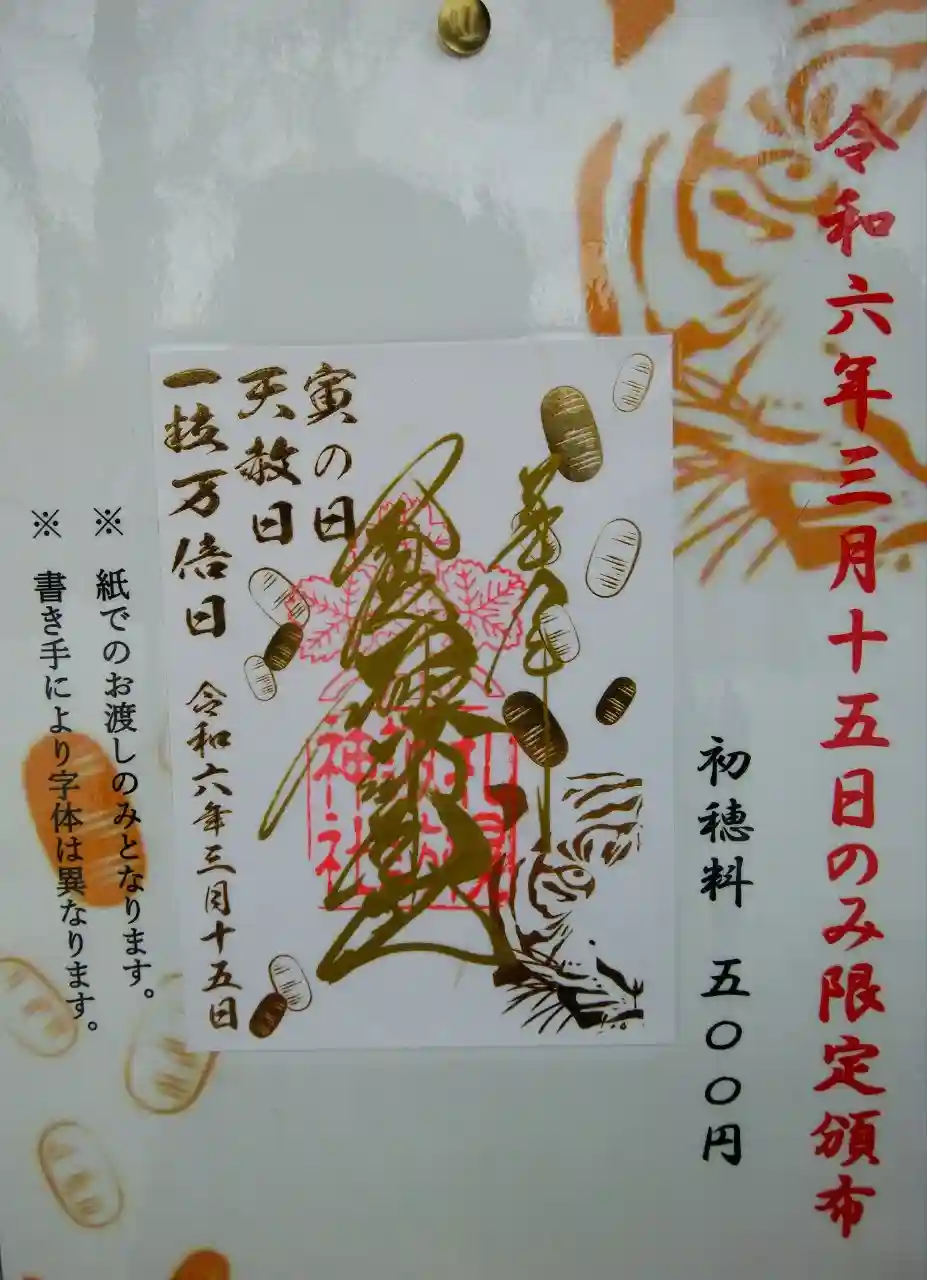 令和六年三月十五日のみ限定頒布
初穂料 五〇〇円
神社
寅の日
天赦日
一粒万倍日
令和六年三月十五日
※ 紙でのお渡しのみとなります。
※ 書き手により字体は異なります。